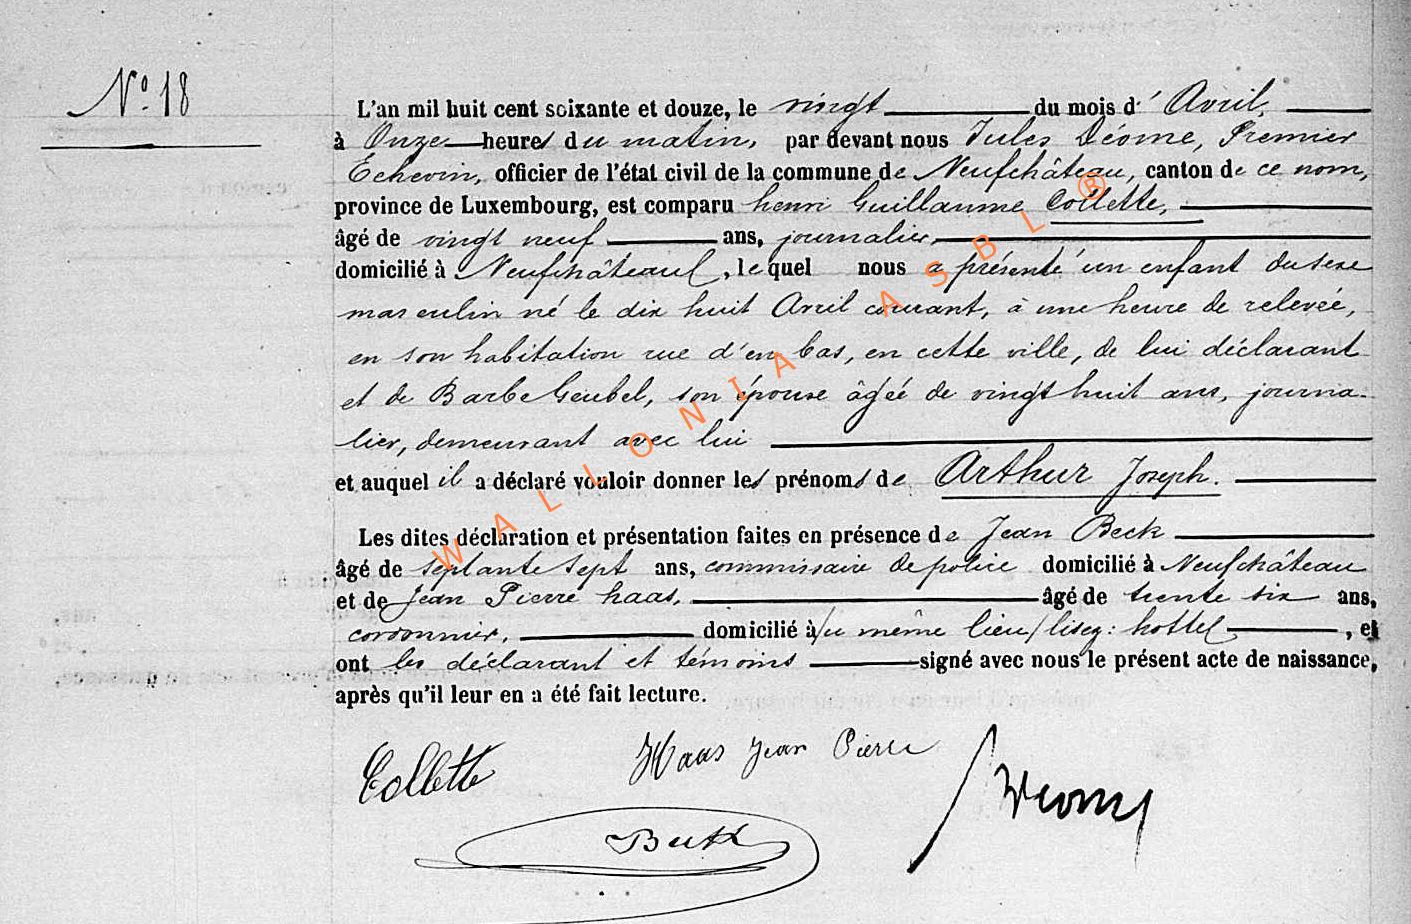 N° 18
L'an mil huit cent soixante et douze, le vingt du mois d' Avril,
à Onze heures du matin, par devant nous Jules Déome, Premier
Echevin, officier de l'état civil de la commune de Neufchâteau, canton de ce nom,
province de Luxembourg, est comparu henri Guillaume Collette,
âgé de vingt neuf ans, journalier,
domicilié à Neufchâteau, lequel nous a présenté un enfant du sexe
masculin né le dix huit Avril courant, à une heure de relevée,
en son habitation rue d'en bas, en cette ville, de lui déclarant
et de Barbe Geubel, son épouse âgée de vingt huit ans, journa-
lier, demeurant avec lui
et auquel il a déclaré vouloir donner les prénoms de Arthur Joseph.
Les dites déclaration et présentation faites en présence de Jean Beck
âgé de septante sept ans, commissaire de police domicilié à Neufchâteau
et de Jean Pierre haas, âgé de trente six ans,
cordonnier, domicilié à/u même lieu/lisez: hottel, et
ont les déclarant et témoins signé avec nous le présent acte de naissance,
après qu'il leur en a été fait lecture.
Collette Haas Jean Pierre Déome
Beck
WALLONIA ASBL ®